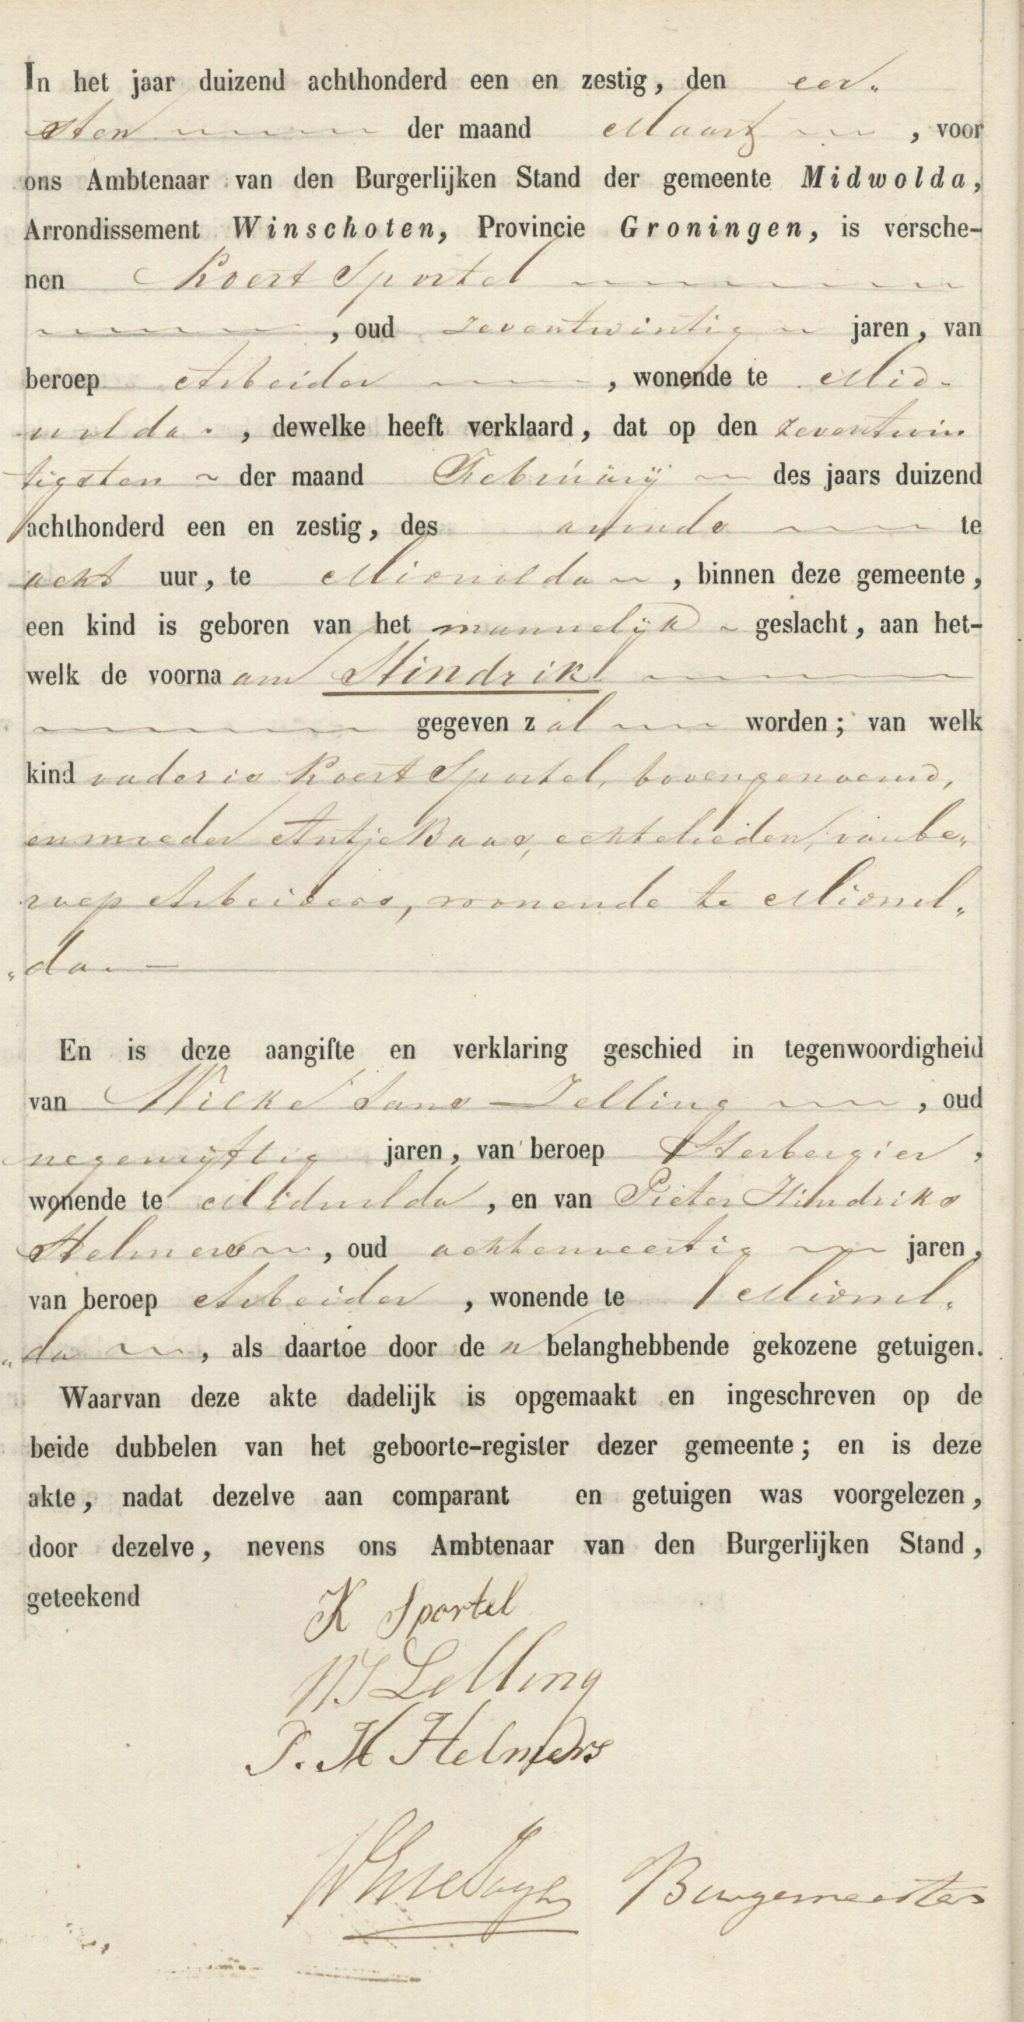 In het jaar duizend achthonderd een en zestig, den eer„
sten der maand Maart , voor
ons Ambtenaar van den Burgerlijken Stand der gemeente Midwolda,
Arrondissement Winschoten, Provincie Groningen, is versche-
nen Koert Sportel
, oud zeventwintig jaren, van
beroep Arbeider , wonende te Mid„
wolda , dewelke heeft verklaard, dat op den zeventwin
tigsten der maand Februarij des jaars duizend
achthonderd een en zestig, des avonds te
acht uur, te Midwolda , binnen deze gemeente,
een kind is geboren van het mannelijk geslacht, aan het-
welk de voornaam Hindrik
gegeven zal worden; van welk
kind vader is Koert Sportel, bovengenoemd,
en moeder Antje Baas, echtelieden, van be„
roep Arbeiders, wonende te Midwol„
„da
En is deze aangifte en verklaring geschied in tegenwoordigheid
van Wilke Jans Lelling , oud
negenvijftig jaren, van beroep Herbergier,
wonende te Midwolda , en van Pieter Hindriks
Helmers , oud achtenveertig jaren,
van beroep Arbeider , wonende te Midwol„
„da , als daartoe door de n belanghebbende gekozene getuigen.
Waarvan deze akte dadelijk is opgemaakt en ingeschreven op de
beide dubbelen van het geboorte-register dezer gemeente; en is deze
akte, nadat dezelve aan comparant en getuigen was voorgelezen,
door dezelve, nevens ons Ambtenaar van den Burgerlijken Stand,
geteekend
K Sportel
WJ Lelling
P. H Helmers
Burgemeester